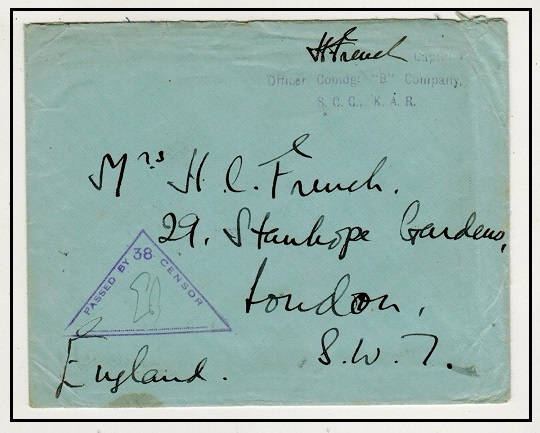 H French Captain
Officer Comdg. "B" Company,
S. C. C., K. A. R.
Mrs H. C. French.
29. Stanhope Gardens,
PASSED BY 38 CENSOR
London,
S. W. 7.
England.